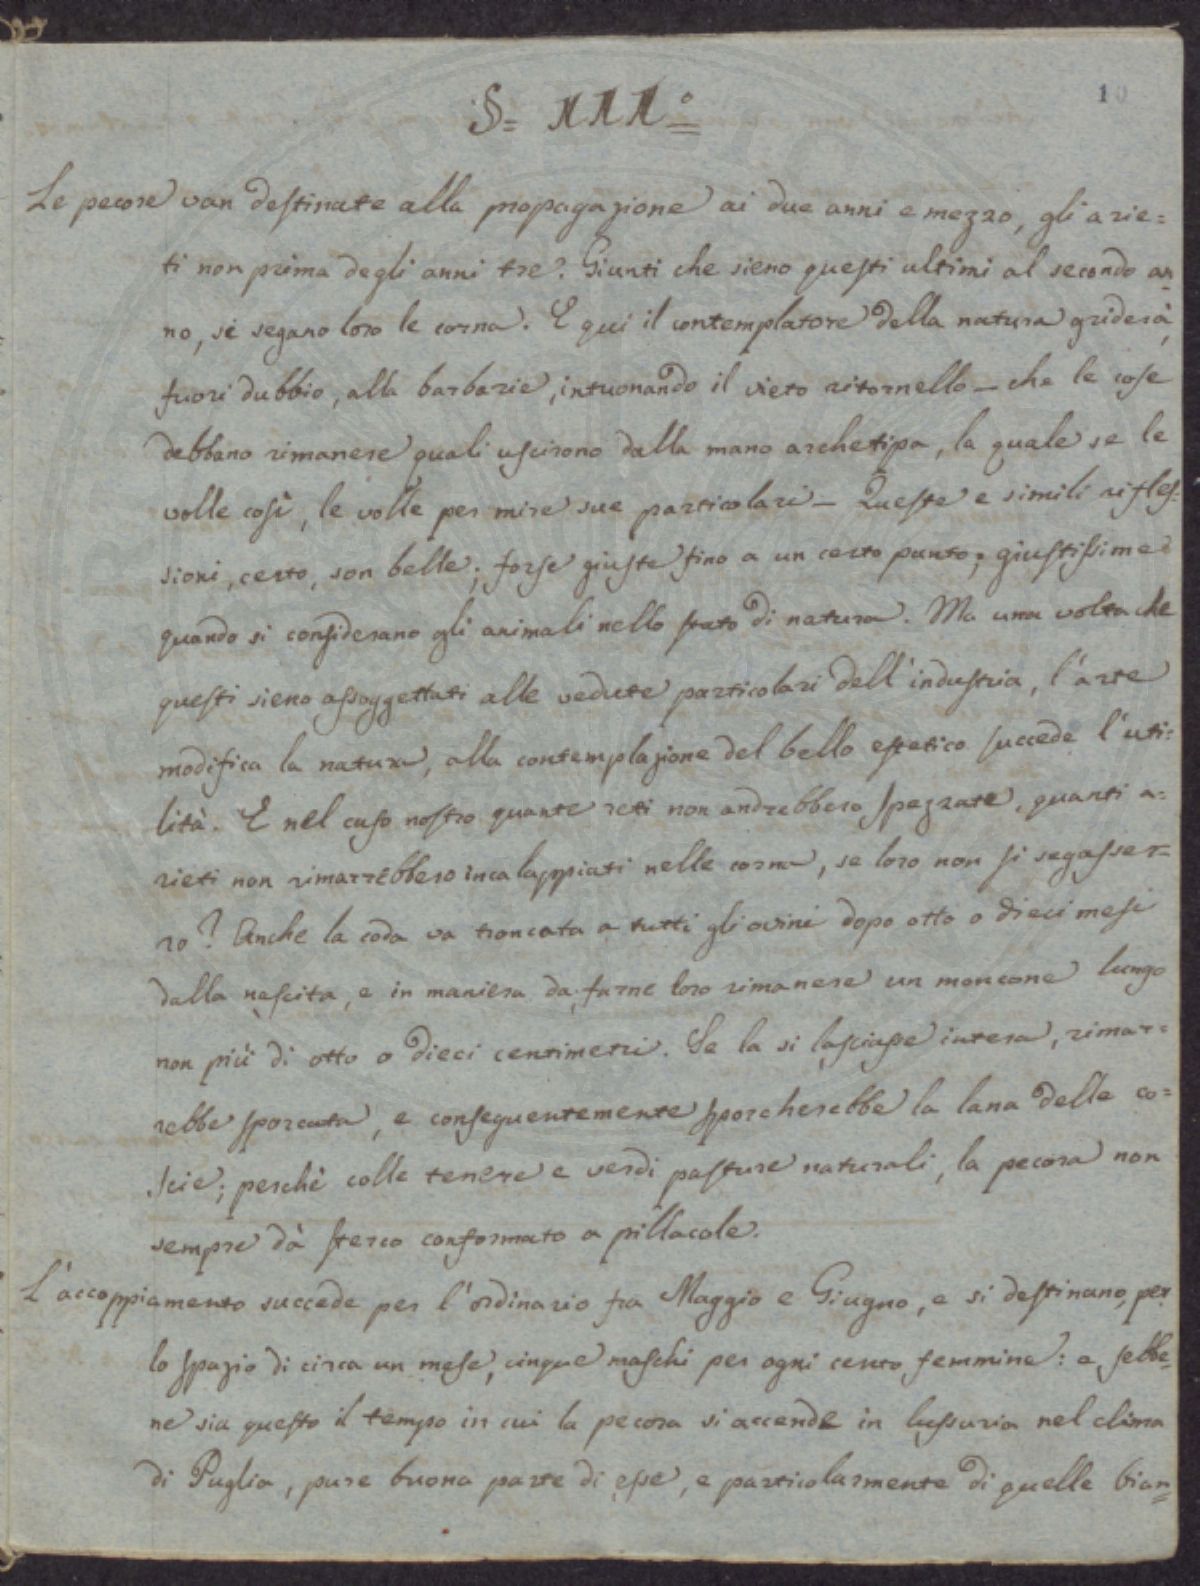 §= III.º
10
Le pecore van destinate alla propagazione ai due anni e mezzo, gli arie=
ti non prima degli anni tre. Giunti che sieno questi ultimi al secondo an=
no, si segano loro le corna. E qui il contemplatore della natura griderà,
fuori dubbio, alla barbarie, intuonando il vieto ritornello — che le cose
debbano rimanere quali uscirono dalla mano archetipa, la quale se le
volle così, le volle per mire sue particolari — Queste e simili rifles=
sioni, certo, son belle; forse giuste fino a un certo punto; giustissime
quando si considerano gli animali nello stato di natura. Ma una volta che
questi sieno assoggettati alle vedute particolari dell'industria, l'arte
modifica la natura, alla contemplazione del bello estetico succede l'uti=
lità. E nel caso nostro quante reti non andrebbero spezzate, quanti a=
rieti non rimarrebbero incalappiati nelle corna, se loro non si segasser=
ro? Anche la coda va troncata a tutti gli ovini dopo otto o dieci mesi
dalla nascita, e in maniera da farne loro rimanere un moncone lungo
non più di otto o dieci centimetri. Se la si lasciasse intera, rimar=
rebbe sporcata, e conseguentemente sporcherebbe la lana delle co=
scie; perchè colle tenere e verdi pasture naturali, la pecora non
sempre dà sterco conformato a pillacole.
L'accoppiamento succede per l'ordinario fra Maggio e Giugno, e si destinano, per
lo spazio di circa un mese, cinque maschi per ogni cento femmine: e, sebbe=
ne sia questo il tempo in cui la pecora si accende in lussuria nel clima
di Puglia, pure buona parte di esse, e particolarmente di quelle bian=